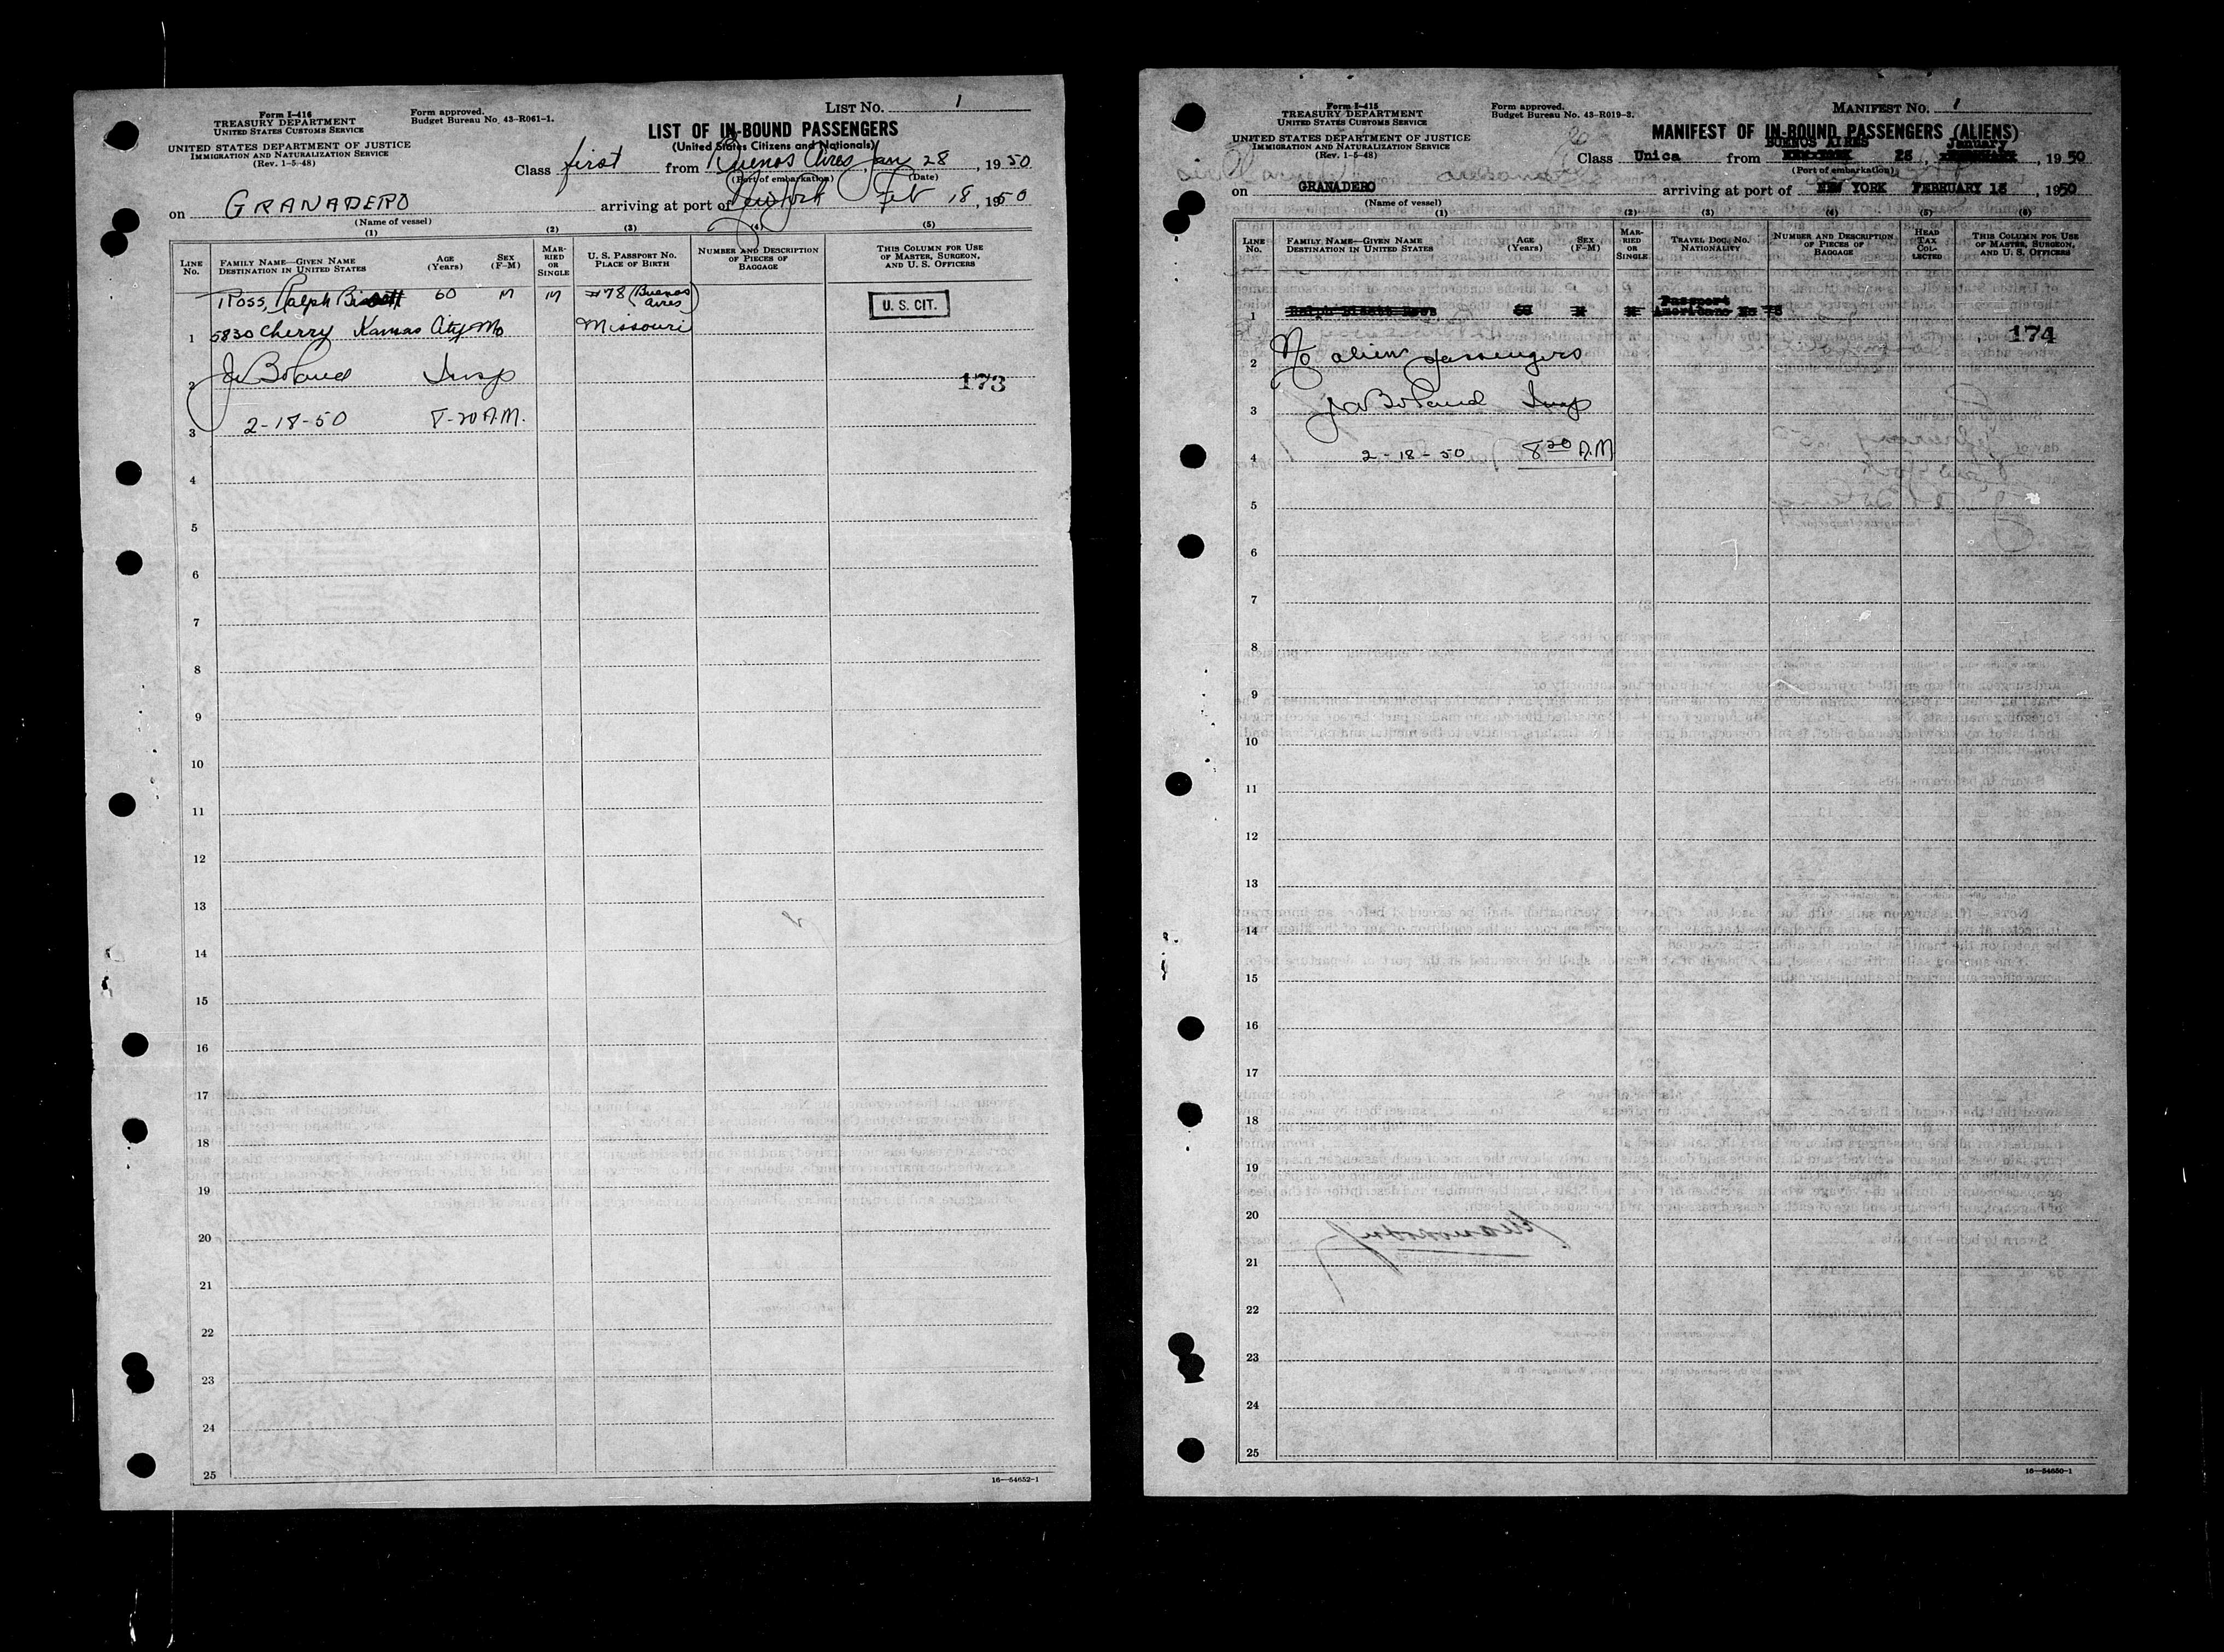 Form I-416
TREASURY DEPARTMENT
UNITED STATES CUSTOMS SERVICE
UNITED STATES DEPARTMENT OF JUSTICE
IMMIGRATION AND NATURALIZATION SERVICE
(Rev. 1-5-48)
Form approved.
Budget Bureau No. 43-R061-1.
LIST NO. 1
LIST OF IN-BOUND PASSENGERS
(United States Citizens and Nationals)
Class first from Buenos Aires, Jan 28, 1950
(Port of embarkation) (Date)
on GRANADERO arriving at port of New York Feb 18, 1950
(Name of vessel)
(1) (2) (3) (4) (5)
LINE No.
FAMILY NAME—GIVEN NAME
DESTINATION IN UNITED STATES
AGE (Years)
SEX (F-M)
MARRIED OR SINGLE
U. S. PASSPORT NO.
PLACE OF BIRTH
NUMBER AND DESCRIPTION OF PIECES OF BAGGAGE
THIS COLUMN FOR USE OF MASTER, SURGEON, AND U. S. OFFICERS
Ross, Ralph 60 M M #78 (Buenos Aires)
U. S. CIT.
1 5830 Cherry Kansas City Mo Missouri
2 Boland Insp 173
3 2-18-50 8-20 A.M.
4
5
6
7
8
9
10
11
12
13
14
15
16
17
18
19
20
21
22
23
24
25
16—54652-1
Form I-415
TREASURY DEPARTMENT
UNITED STATES CUSTOMS SERVICE
UNITED STATES DEPARTMENT OF JUSTICE
IMMIGRATION AND NATURALIZATION SERVICE
(Rev. 1-5-48)
Form approved.
Budget Bureau No. 43-R019-3.
MANIFEST NO. 1
MANIFEST OF IN-BOUND PASSENGERS (ALIENS)
BUENOS AIRES January
Class Unica from 28, 1950
(Port of embarkation)
on GRANADERO arriving at port of NEW YORK FEBRUARY 18 1950
(Name of vessel)
(1) (2) (3) (4) (5) (6)
LINE No.
FAMILY NAME—GIVEN NAME
DESTINATION IN UNITED STATES
AGE (Years)
SEX (F-M)
MARRIED OR SINGLE
TRAVEL DOC. NO.
NATIONALITY
NUMBER AND DESCRIPTION OF PIECES OF BAGGAGE
HEAD TAX COLLECTED
THIS COLUMN FOR USE OF MASTER, SURGEON, AND U. S. OFFICERS
Passport
1 Ralph Bisett Ross 60 M M Americano No 78
174
2 No alien passengers
3 Boland Insp
4 2-18-50 8 20 A.M
5
6
7
8
9
10
11
12
13
14
15
16
17
18
19
20
21
22
23
24
25
16—54650-1